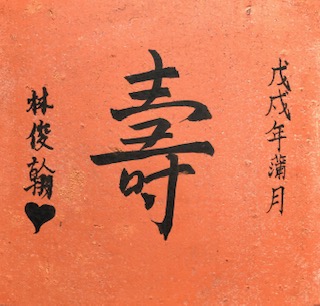 戊戌年蒲月
壽
林俊翰♥